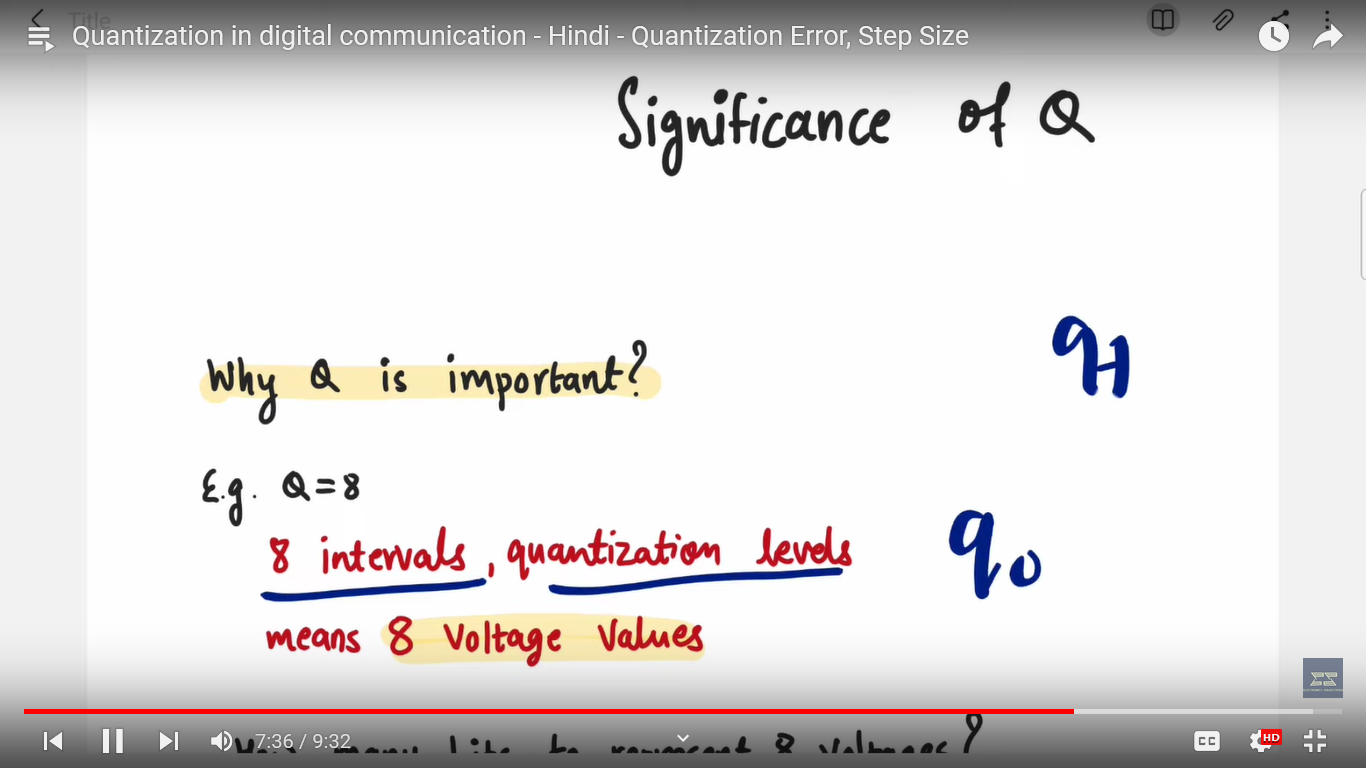 Title
Quantization in digital communication - Hindi - Quantization Error, Step Size
Significance of Q
Why Q is important?
E.g. Q=8
8 intervals, quantization levels
means 8 Voltage Values
q0
many bits to represent 8 voltages?
7:36 / 9:32
CC
HD